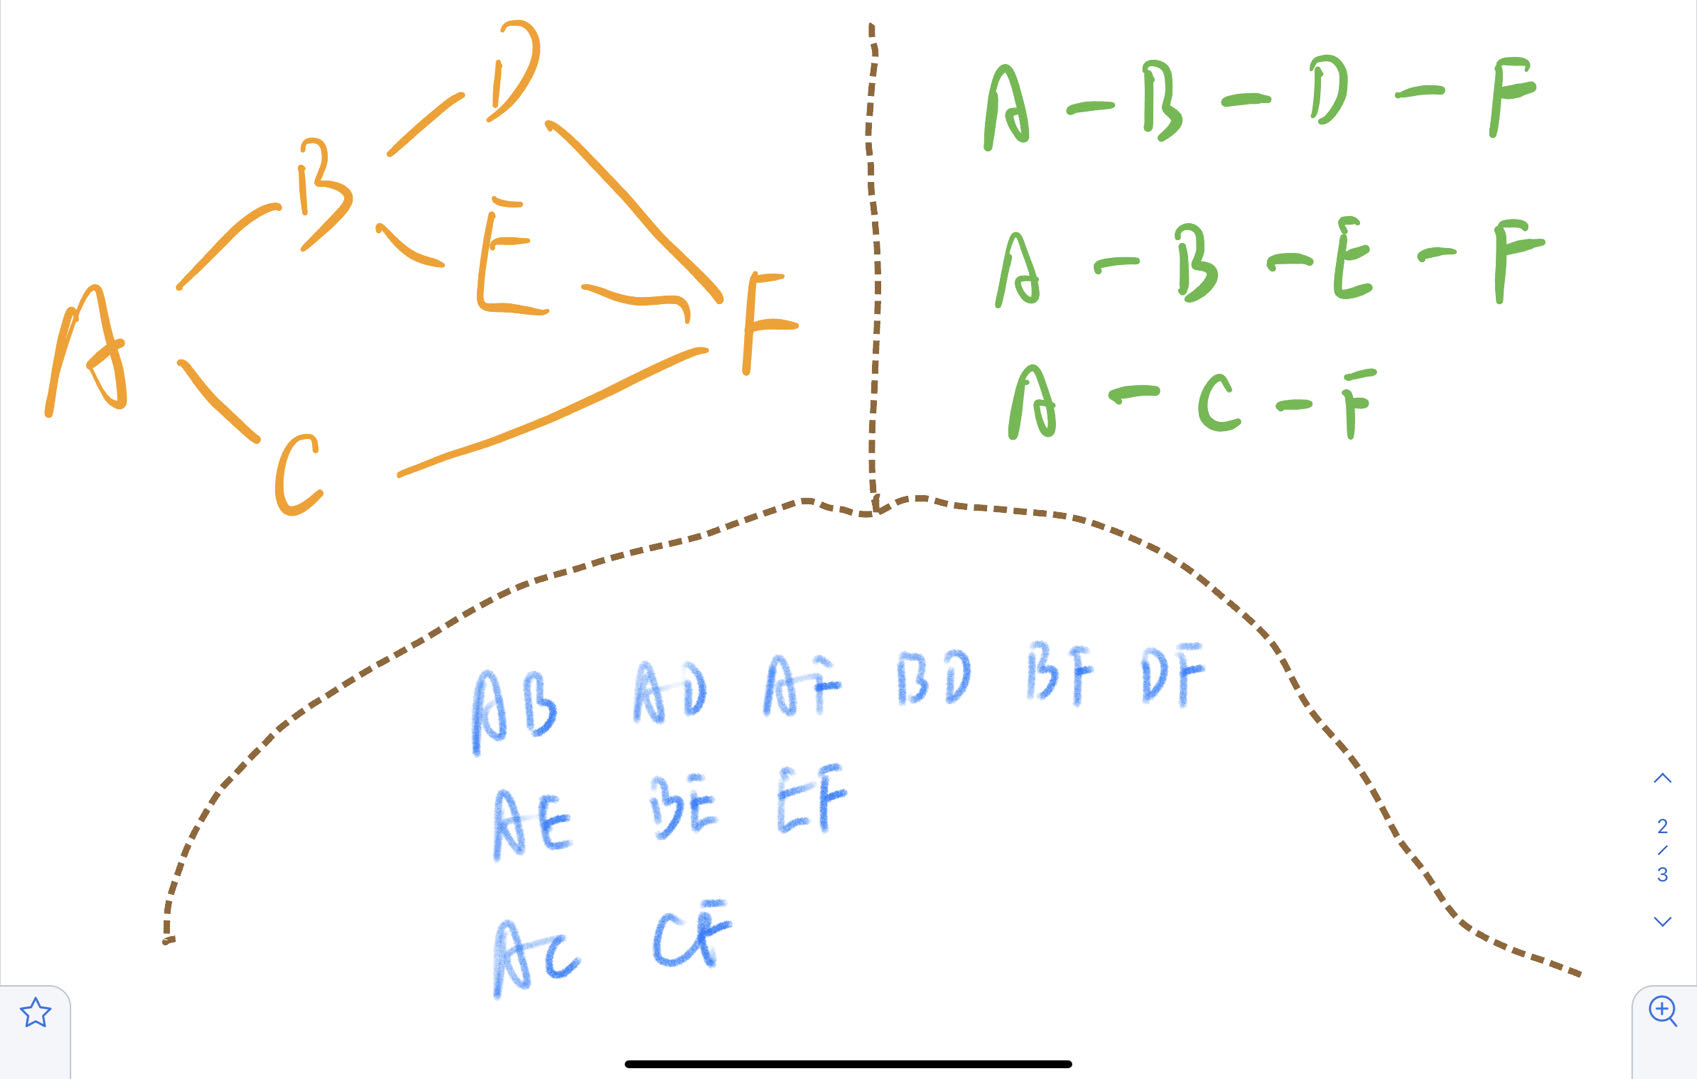 D
B
E
A
F
C
A - B - D - F
A - B - E - F
A - C - F
AB AD AF BD BF DF
AE BE EF
AC CF
2
/
3